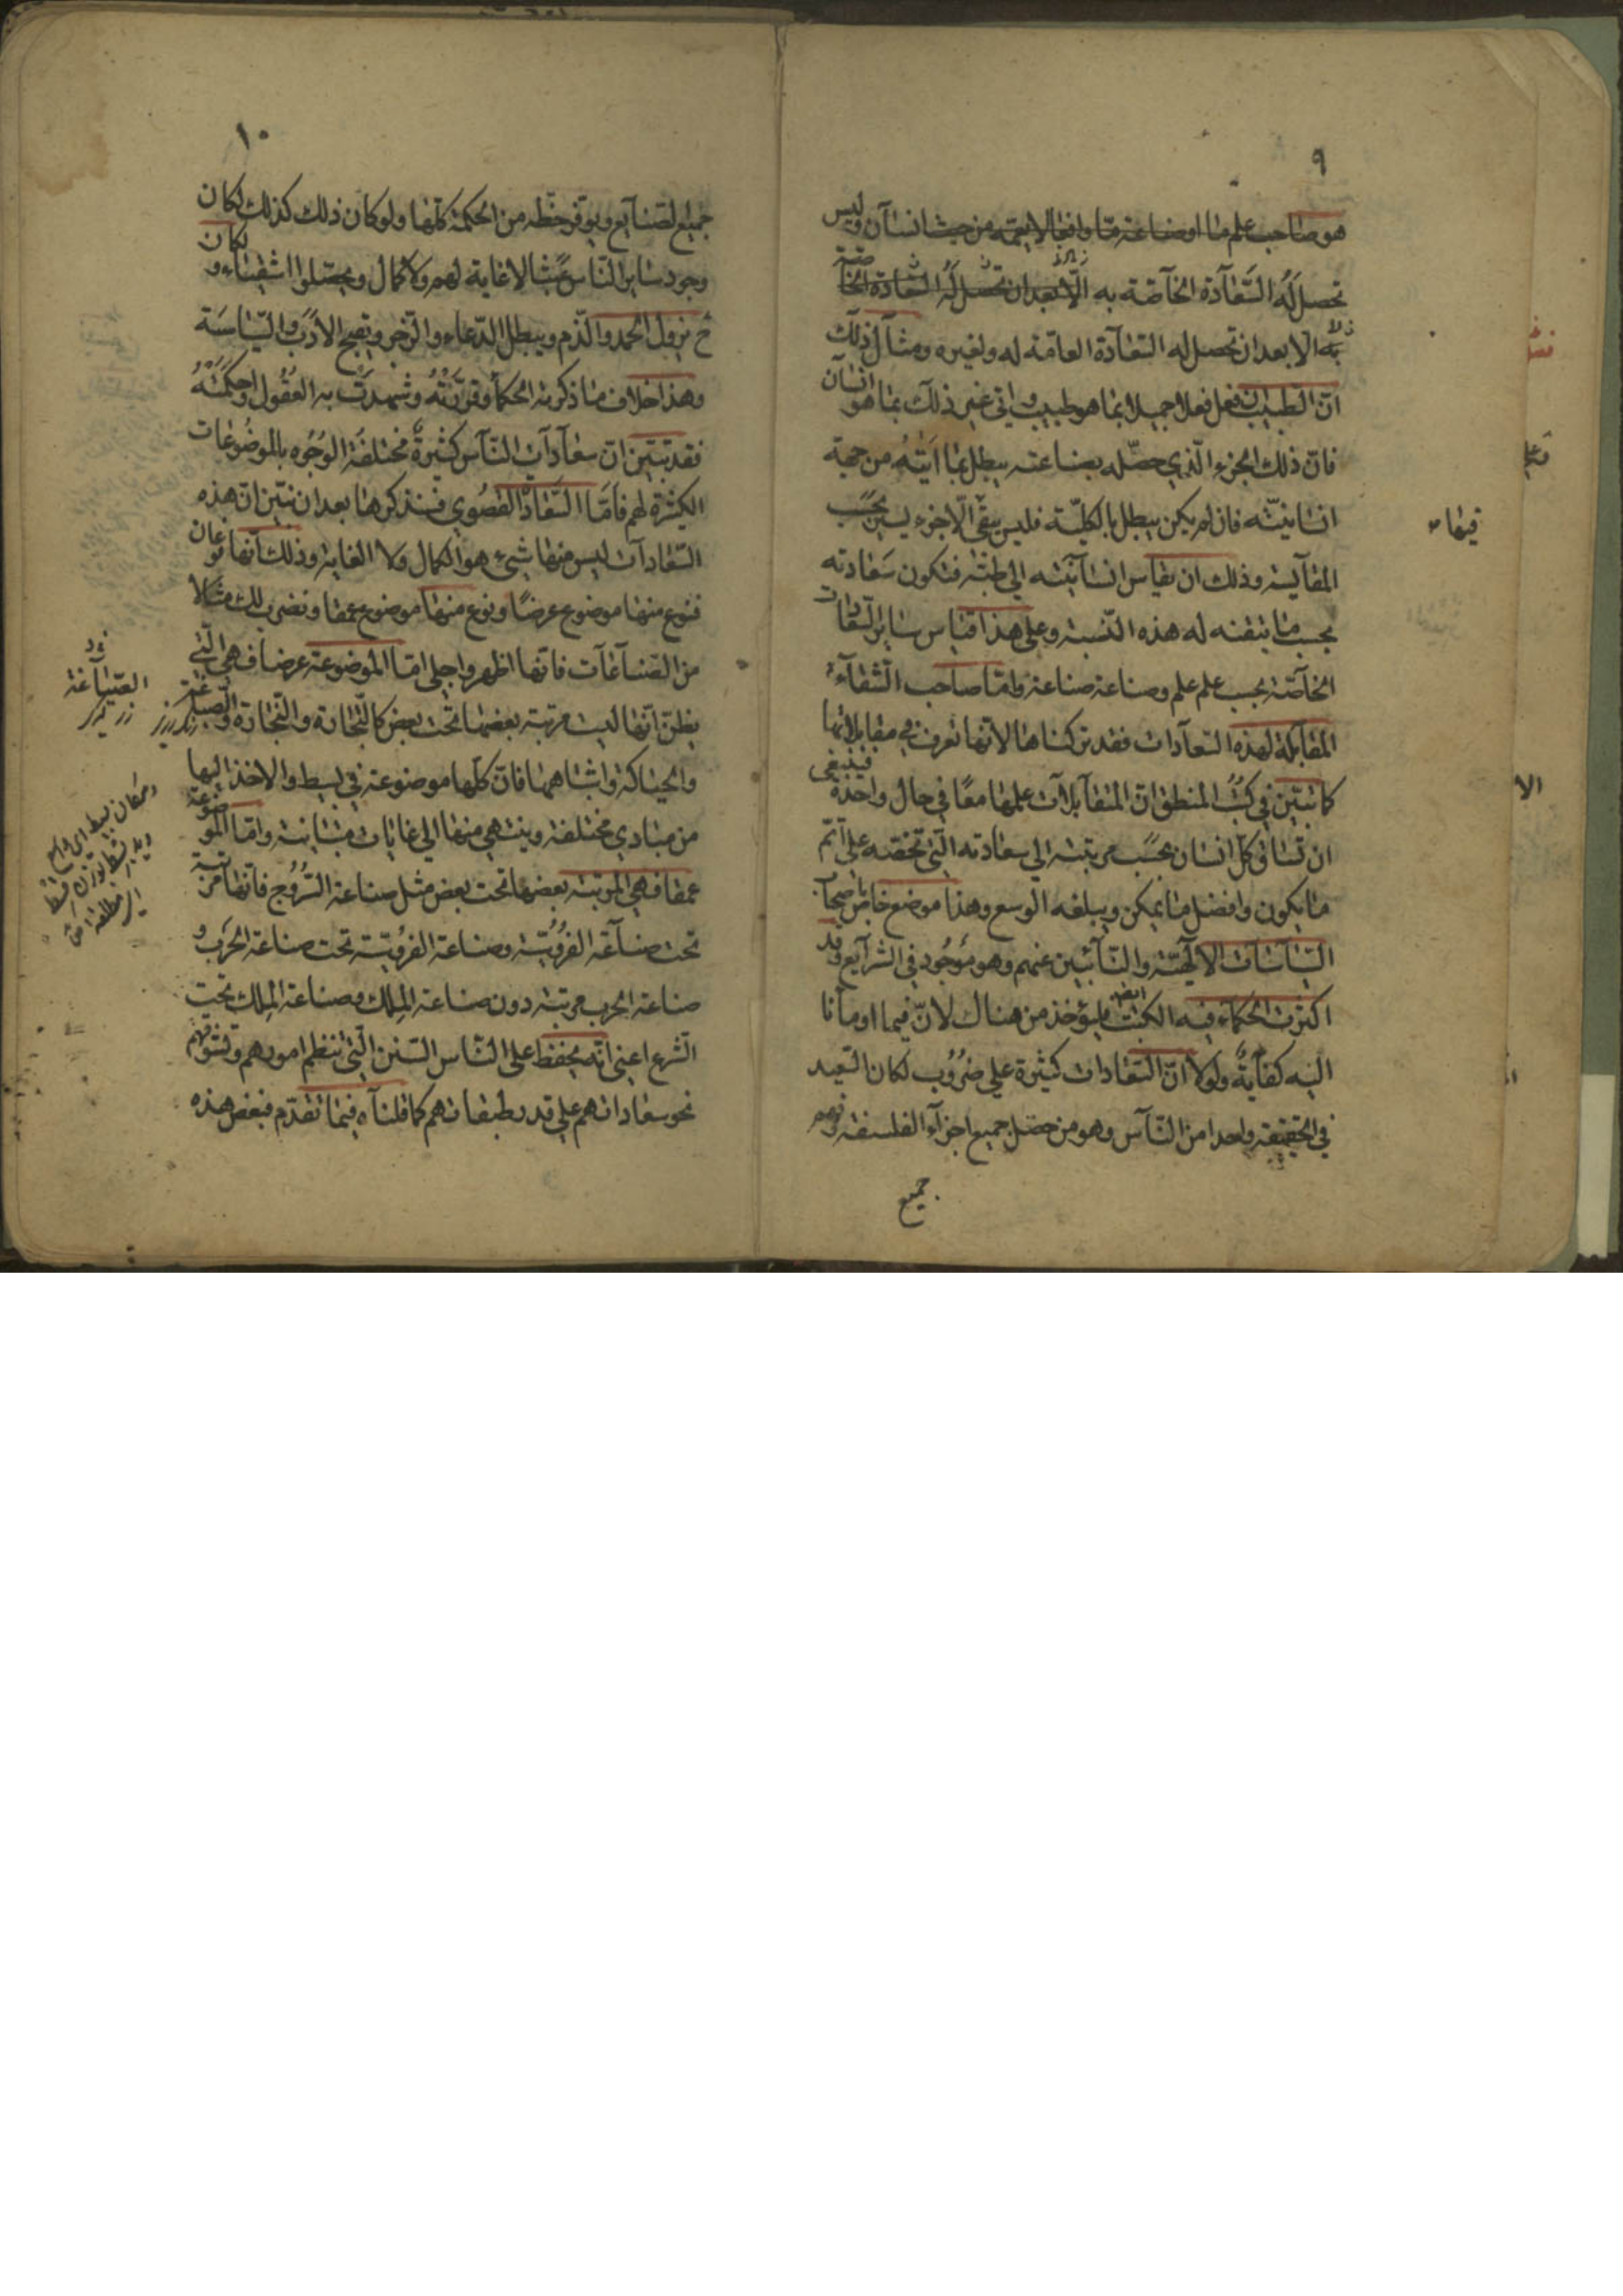 ٩
هو صاحب علم ما او صناعة ما وافعالا يعمّه من حيث انسان وليس
تحصل له السّعادة الخاصّة به الّا بعد ان تحصل له السّعادة الخاصّة
به الا بعد ان تحصل له السعادة العامّة له ولغيره ومثال ذلك
انّ الطبيب ان فعل فعلا جميلا بما هو طبيب واتى غير ذلك بما هو انسان
فان ذلك الجزء الّذي حصّله بصناعته يبطل بما اتيته من جهة
انسانيّته فان لم يكن يبطل بالكليّة فليس يبقى الّا جزء يسير بحسب
المقايسة وذلك ان يقاس انسانيّته الى طبّه فتكون سعادته
بحسب ما يتفنه له هذه النّسبة وعلى هذا قياس ساير السّعادات
الخاصّة بحسب علم علم وصناعة صناعة وامّا صاحب الشّقاء
المقابلة لهذه السّعادات فقد تركناها لانّها تعرف في مقابلاتها
كما تبيّن في كتب المنطق انّ المتقابلات علمها معًا في حال واحدة فينبغي
ان تساق كلّ انسان بحسب مرتبته الى سعادته الّتي تخصّه على اتمّ
ما يكون وافضل ما يمكن ويبلغه الوسع وهذا موضع خاص باصحاب
السّياسات الالهيّة والنّائبين عنهم وهو موجود في الشرايع وقد
اكثرت الحكماء فيه الكتب ايضا فليؤخذ من هناك لانّ فيما اومأنا
اليه كفاية ولولا انّ السّعادات كثيرة على ضروب لكان السّعيد
في الحقيقة واحدا من النّاس وهو من حصّل جميع اجزاء الفلسفة وفهم
جميع
فيهاء
١٠
جميع الصّنايع ويوفّر حظّه من الحكمة كلّها ولو كان ذلك كذلك لكان
وجود ساير النّاس عبثا لا غاية لهم ولا كمال ويحصّلوا اشقياء و
ح يزول الحمد والذّم ويبطل الدّعاء والزّجر ويقبح الادب والسّياسة
وهذا خلاف ما ذكرته الحكماء وقرّرته وشهدت به العقول واحكمته
فقد تبيّن انّ سعادات النّاس كثيرة مختلفة الوجوه بالموضوعات
الكثيرة لهم فامّا السّعادة القصوى فسنذكرها بعد ان نبيّن ان هذه
السّعادات ليس منها شيء هو الكمال ولا الغاية وذلك انّها نوعان
فنوع منها موضوع عرضًا ونوع منها موضوع عمقا ونضرب لك مثالا
من الصّناعات فانّها اظهر واجلى امّا الموضوعة عرضا فهي الّتي
يظنّ انّها ليست مرتبة بعضها تحت بعض كالتّجارة والنّجارة والصّباغة
والحياكة واشباهها فانّ كلّها موضوعة في بسيط والاخذ اليها
من مبادي مختلفة وينتهي منها الى غايات متباينة وامّا الموضوعة
عمقا فهي المرتبة بعضها تحت بعض مثل صناعة السّروج فانّها مرتبة
تحت صناعة الفروسيّة وصناعة الفروسيّة تحت صناعة الحرب و
صناعة الحرب مرتبة دون صناعة الملك وصناعة الملك تحت
الشّرع اعني انّه يحفظ على النّاس السّنن الّتي تنظم امورهم وتسوقهم
نحو سعاداتهم على قدر طبقاتهم كما قلناه فيما تقدّم فبعض هذه
الصّياغة
زركر
رنكرز